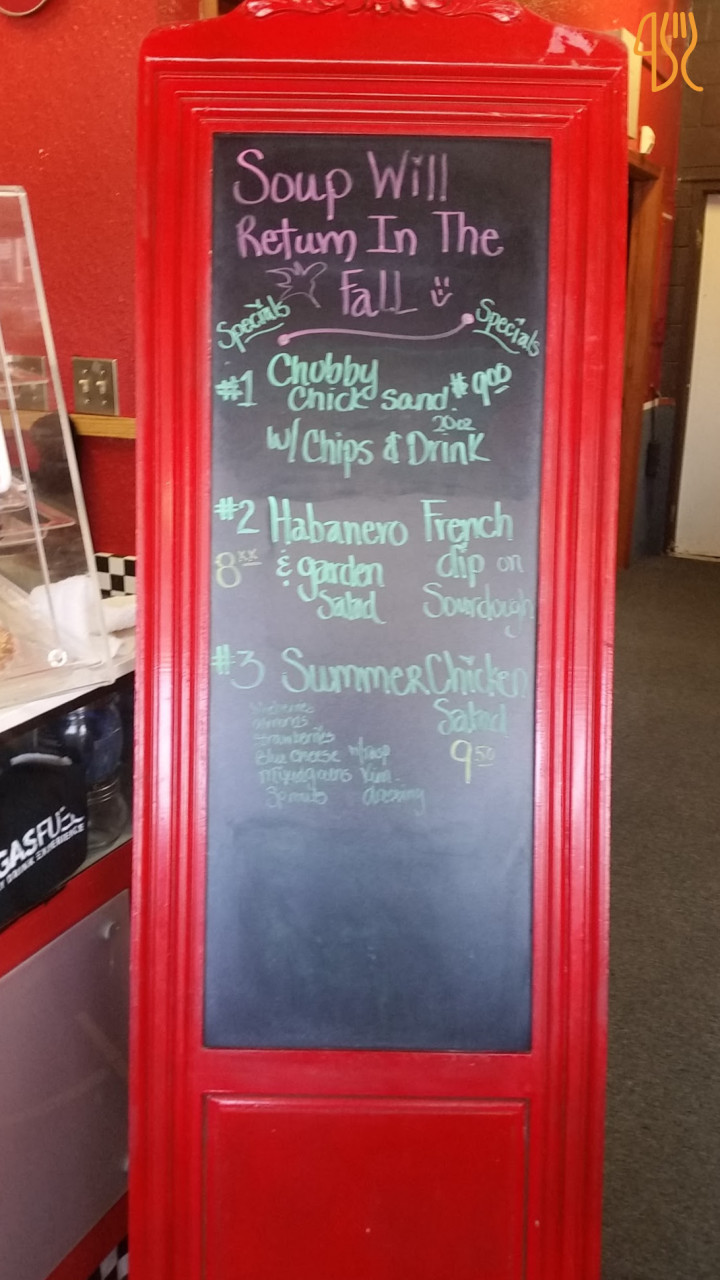 Soup Will
Return In The
Fall
Specials
Specials
#1 Chubby
Chick sand. $9.00
w/ Chips & 20oz Drink
#2 Habanero French
8 & garden dip on
Salad Sourdough
#3 Summer Chicken
Salad
9.50
blueberries
almonds
strawberries
Blue cheese w/rasp
Mixed greens Vin.
dressing
GASFUEL
DRINK EXPERIENCE